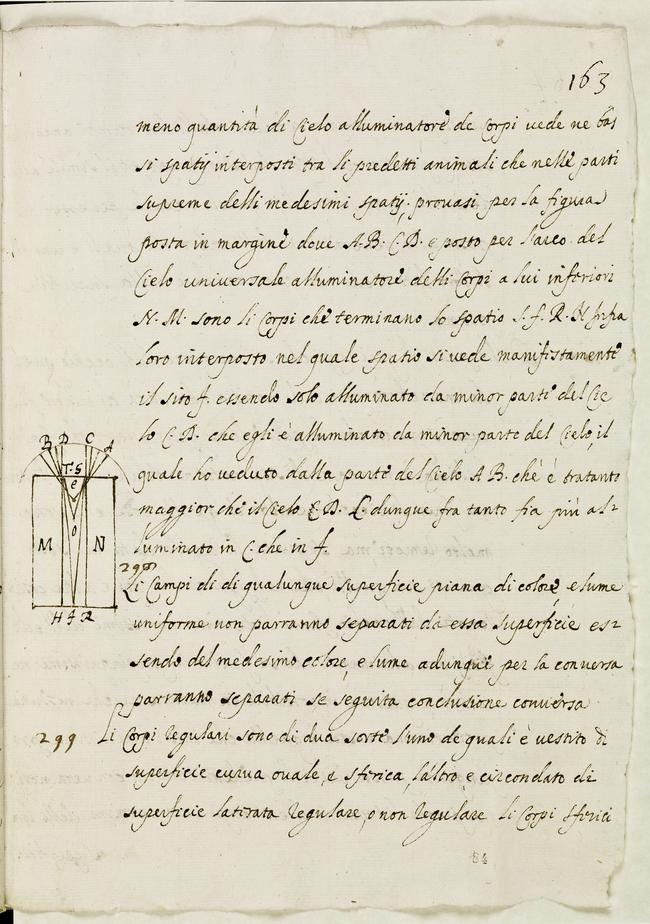 163
meno quantità di Cielo alluminatorè de Corpi vede ne bas
si spatij interposti tra li predetti animali che nellè parti
supreme delli medesimi spatij. prouasi per la figura
posta in marginè doue A.B.C.D. e posto per l'arco del
Cielo uniuersale alluminatorè delli Corpi a lui inferiori
N. M. sono li Corpi chè terminano lo spatio S. f. R. H infra
loro interposto nel quale spatio si vede manifistamentè
il sito f. essendo solo alluminato da minor parte del Cie
lo C. D. che egli è alluminato da minor parte del Cielo, il
quale ho veduto dalla parte del Cielo A B. chè è tratanto
maggior chè il Cielo C D. dunque fra tanto fia più al=
luminato in C. che in f.
B D C A
T. S
e
o
M N
H f R
298
Li Campi di di qualunque superficie piana di colorè, e lume
uniforme non parranno separati da essa superficie es=
sendo del medesimo colorè, e lume adunquè per la conuersa
parranno separati se seguita conclusione conuersa
299 Li Corpi regulari sono di dua sortè l'uno de quali è uestito di
superficie curua ouale, e sferica, l'altro è circondato di
superficie latirata regulare, o non regulare li Corpi sferici
84